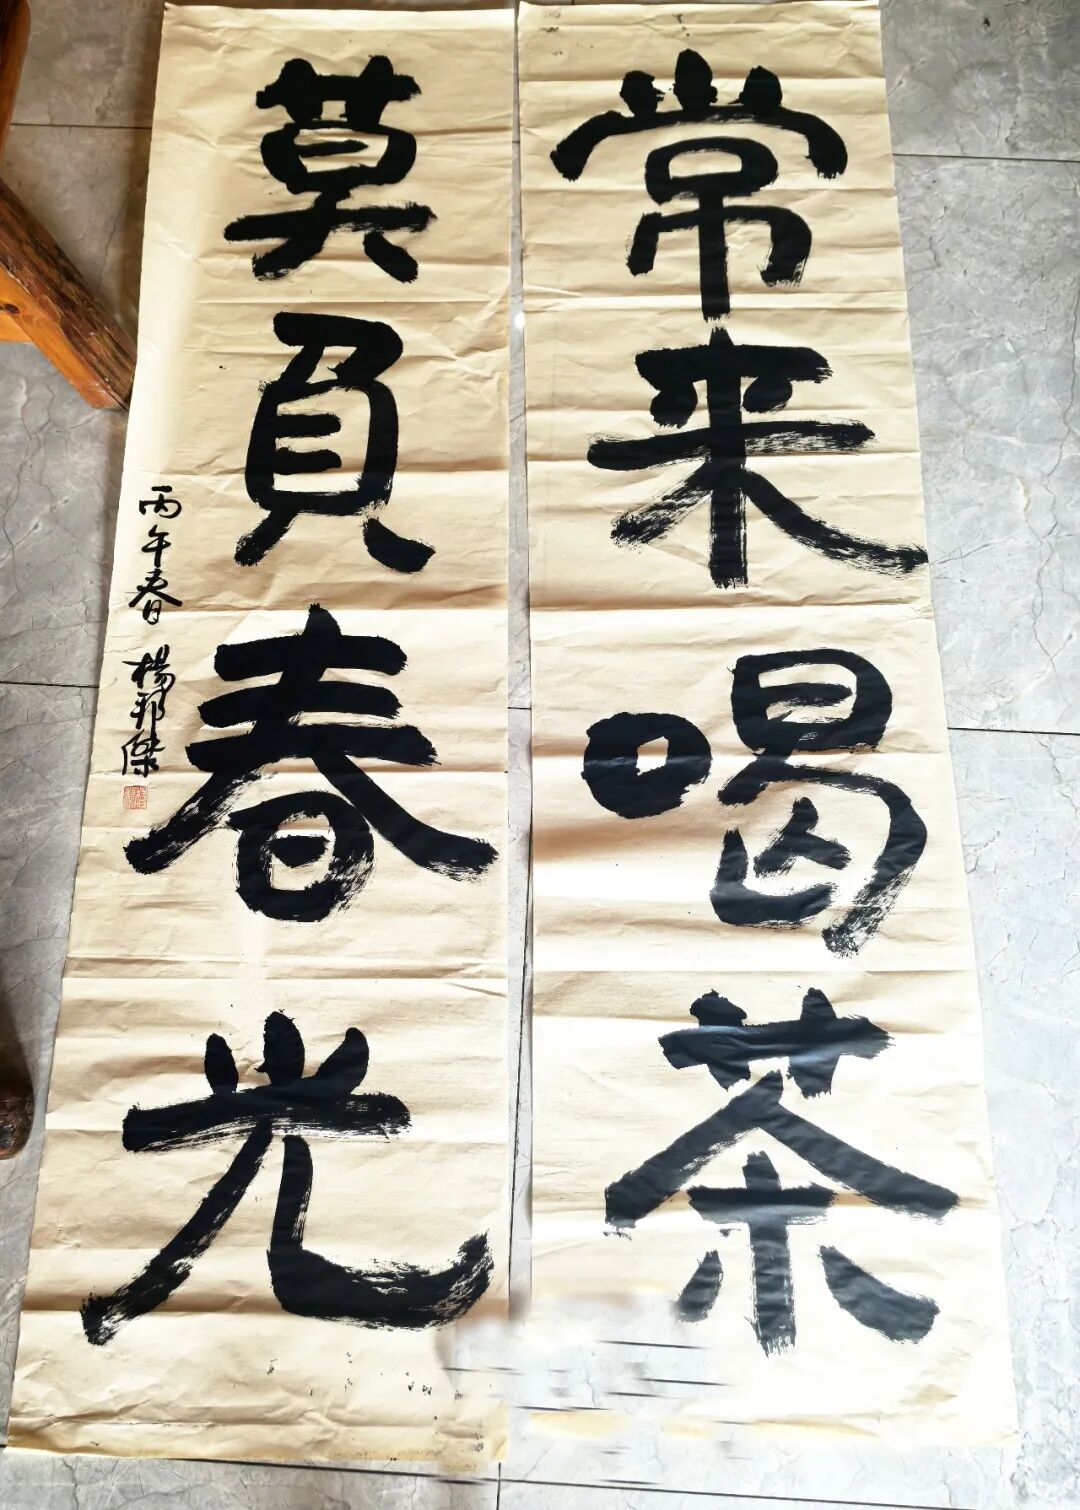 常来喝茶
莫負春光
丙午春 楊邦傑